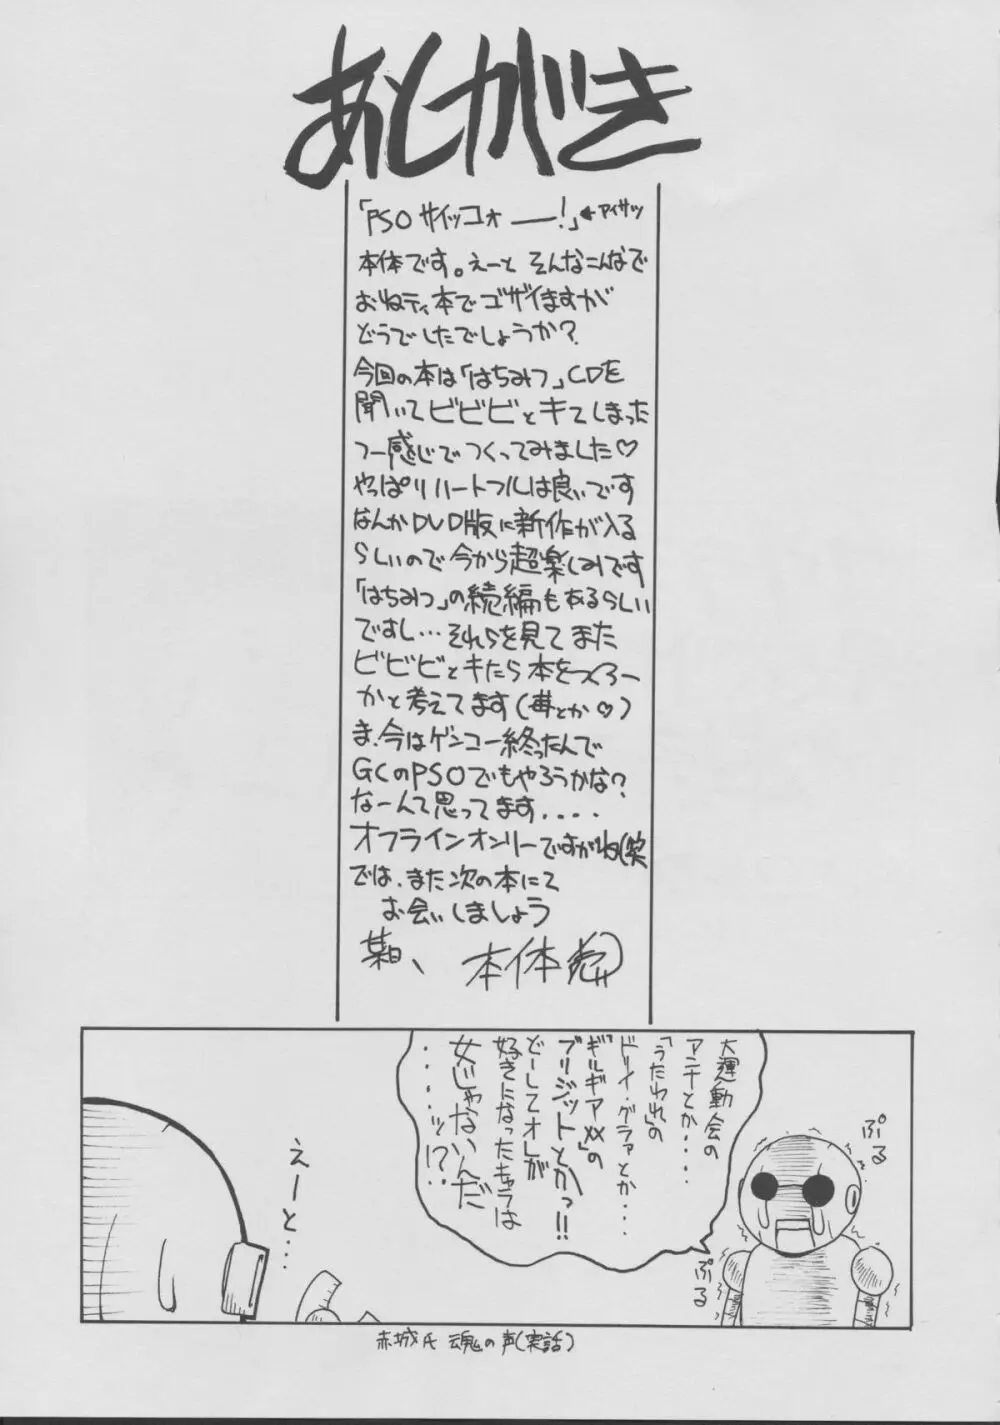 あとがき
「PSOサイッコォ――!」←アイサツ
本体です。えーと そんなこんなで
おねティ本でゴザイますが
どうでしたでしょうか?
今回の本は「はちみつ」CDを
聞いてビビビとキてしまった
つー感じでつくってみました♡
やっぱりハートフルは良いです
なんかDVD版に新作が入る
らしいので今から超楽しみです
「はちみつ」の続編もあるらしい
ですし…それらを見てまた
ビビビとキたら本をつくろー
かと考えてます(苺とか♡)
ま、今はゲンコー終ったんで
GCのPSOでもやろうかな?
なーんて思ってます....
オフラインオンリーですがね(笑
では、また次の本にて
お会いしましょう
某日、 本体
大運動会の
アンナとか....
「うたわれ」の
ドリィ・グラァとか....
「ギルギアXX」の
ブリジットとかっ!!
どーしてオレが
好きになったキャラは
女じゃないんだ
.....ッ!?
ぷる
ぷる
えーと...
赤城氏 魂の声(実話)